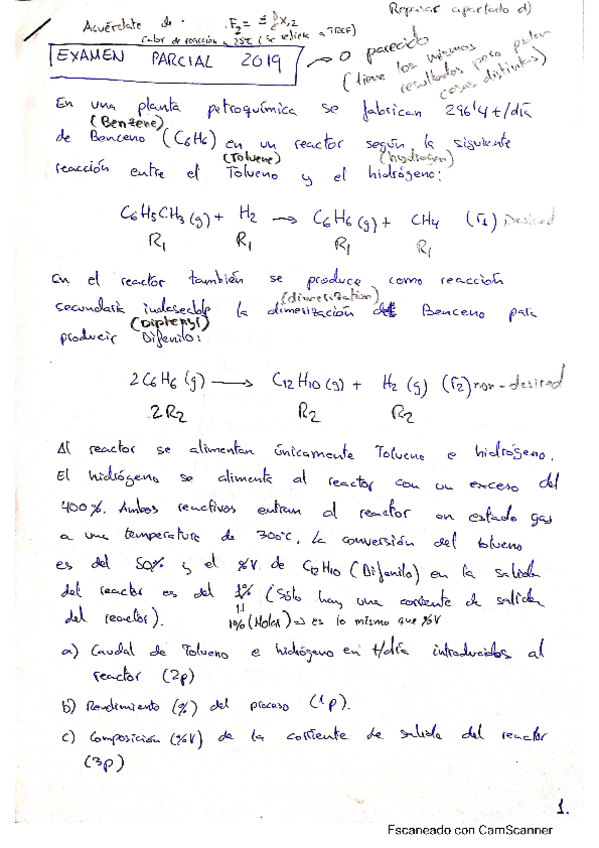 Repasar apartado d)
Acuérdate de:
Calor de reacción a 25ºC (se refiere a TREF)
EXAMEN PARCIAL 2019 → o parecido
(tiene los mismos
resultados pero piden
cosas distintas)
En una planta petroquímica se fabrican 296'4 t/día
(Benzene)
de Benceno (C6H6) en un reactor según la siguiente
(Toluene) (hydrogen)
reacción entre el Tolueno y el hidrógeno:
C6H5CH3 (g) + H2 → C6H6 (g) + CH4 (r1) Desired
R1 R1 R1 R1
En el reactor también se produce como reacción
(dimerization)
secundaria indeseable la dimerización de Benceno para
(Diphenyl)
producir Difenilo:
2C6H6 (g) → C12H10 (g) + H2 (g) (r2) non-desired
2R2 R2 R2
Al reactor se alimentan únicamente Tolueno e hidrógeno.
El hidrógeno se alimenta al reactor con un exceso del
400%. Ambos reactivos entran al reactor en estado gas
a una temperatura de 300ºC. La conversión del tolueno
es del 50% y el %V de C12H10 (Difenilo) en la salida
del reactor es del 1% (Sólo hay una corriente de salida
del reactor). 1% (Molar) ⇒ es lo mismo que %V
a) Caudal de Tolueno e hidrógeno en t/día introducidos al
reactor (2p)
b) Rendimiento (%) del proceso (1p).
c) Composición (%V) de la corriente de salida del reactor
(3p)
1.
Escaneado con CamScanner